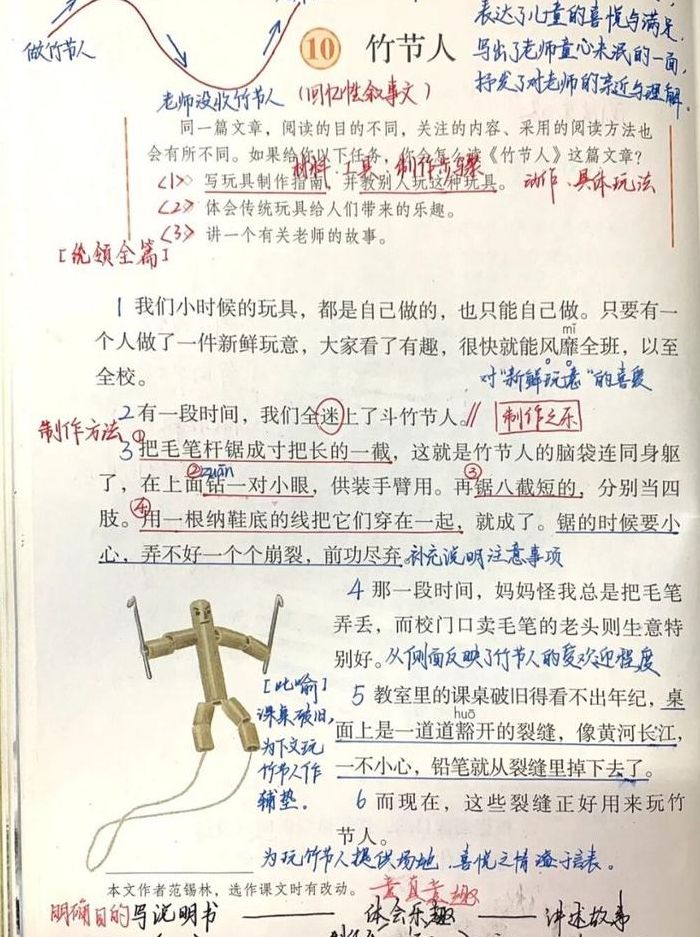 表达了儿童的喜悦与满足
做竹节人
10 竹节人
写出了老师童心未泯的一面,
抒发了对老师的亲近与理解.
老师没收竹节人 (回忆性叙事文)
同一篇文章，阅读的目的不同，关注的内容、采用的阅读方法也
会有所不同。如果给你以下任务，你会怎么读《竹节人》这篇文章？
材料、工具、制作步骤
<1> 写玩具制作指南，并教别人玩这种玩具。 动作、具体玩法
<2> 体会传统玩具给人们带来的乐趣。
<3> 讲一个有关老师的故事。
[统领全篇]
1 我们小时候的玩具，都是自己做的，也只能自己做。只要有一
mǐ
个人做了一件新鲜玩意，大家看了有趣，很快就能风靡全班，以至
全校。
对"新鲜玩意"的喜爱
2 有一段时间，我们全迷上了斗竹节人。// 制作之乐
制作方法
3 ①把毛笔杆锯成寸把长的一截，这就是竹节人的脑袋连同身躯
② zuān ③
了，在上面钻一对小眼，供装手臂用。再锯八截短的，分别当四
肢。④用一根纳鞋底的线把它们穿在一起，就成了。锯的时候要小
心，弄不好一个个崩裂，前功尽弃。补充说明注意事项
4 那一段时间，妈妈怪我总是把毛笔
弄丢，而校门口卖毛笔的老头则生意特
别好。从侧面反映了竹节人的受欢迎程度
[比喻]
课桌破旧,
为下文玩
竹节人作
铺垫。
5 教室里的课桌破旧得看不出年纪，桌
huō
面上是一道道豁开的裂缝，像黄河长江，
一不小心，铅笔就从裂缝里掉下去了。
6 而现在，这些裂缝正好用来玩竹
节人。
为玩竹节人提供场地,喜悦之情溢于言表。
本文作者范锡林，选作课文时有改动。 童真童趣
明确目的 写说明书 —— 体会乐趣 —— 讲述故事